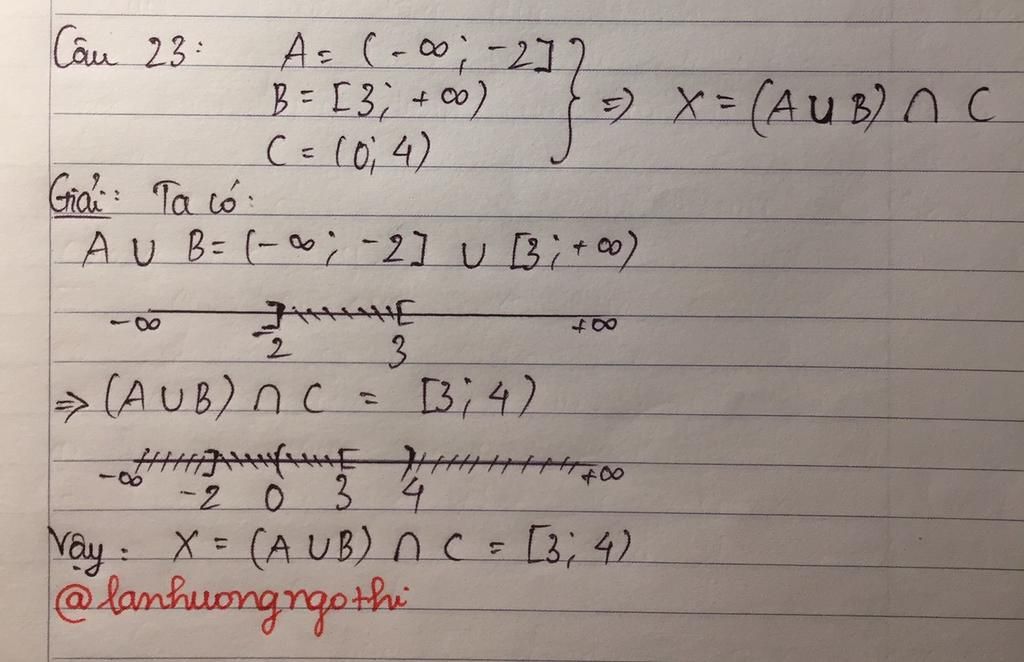 Câu 23: A = (-∞; -2]
B = [3; +∞) } => X = (A ∪ B) ∩ C
C = (0; 4)
Giải: Ta có:
A ∪ B = (-∞; -2] ∪ [3; +∞)
-∞ ] [ +∞
-2 3
=> (A ∪ B) ∩ C = [3; 4)
-∞ ] ( [ ) +∞
-2 0 3 4
Vậy: X = (A ∪ B) ∩ C = [3; 4)
@lanhuongngothi